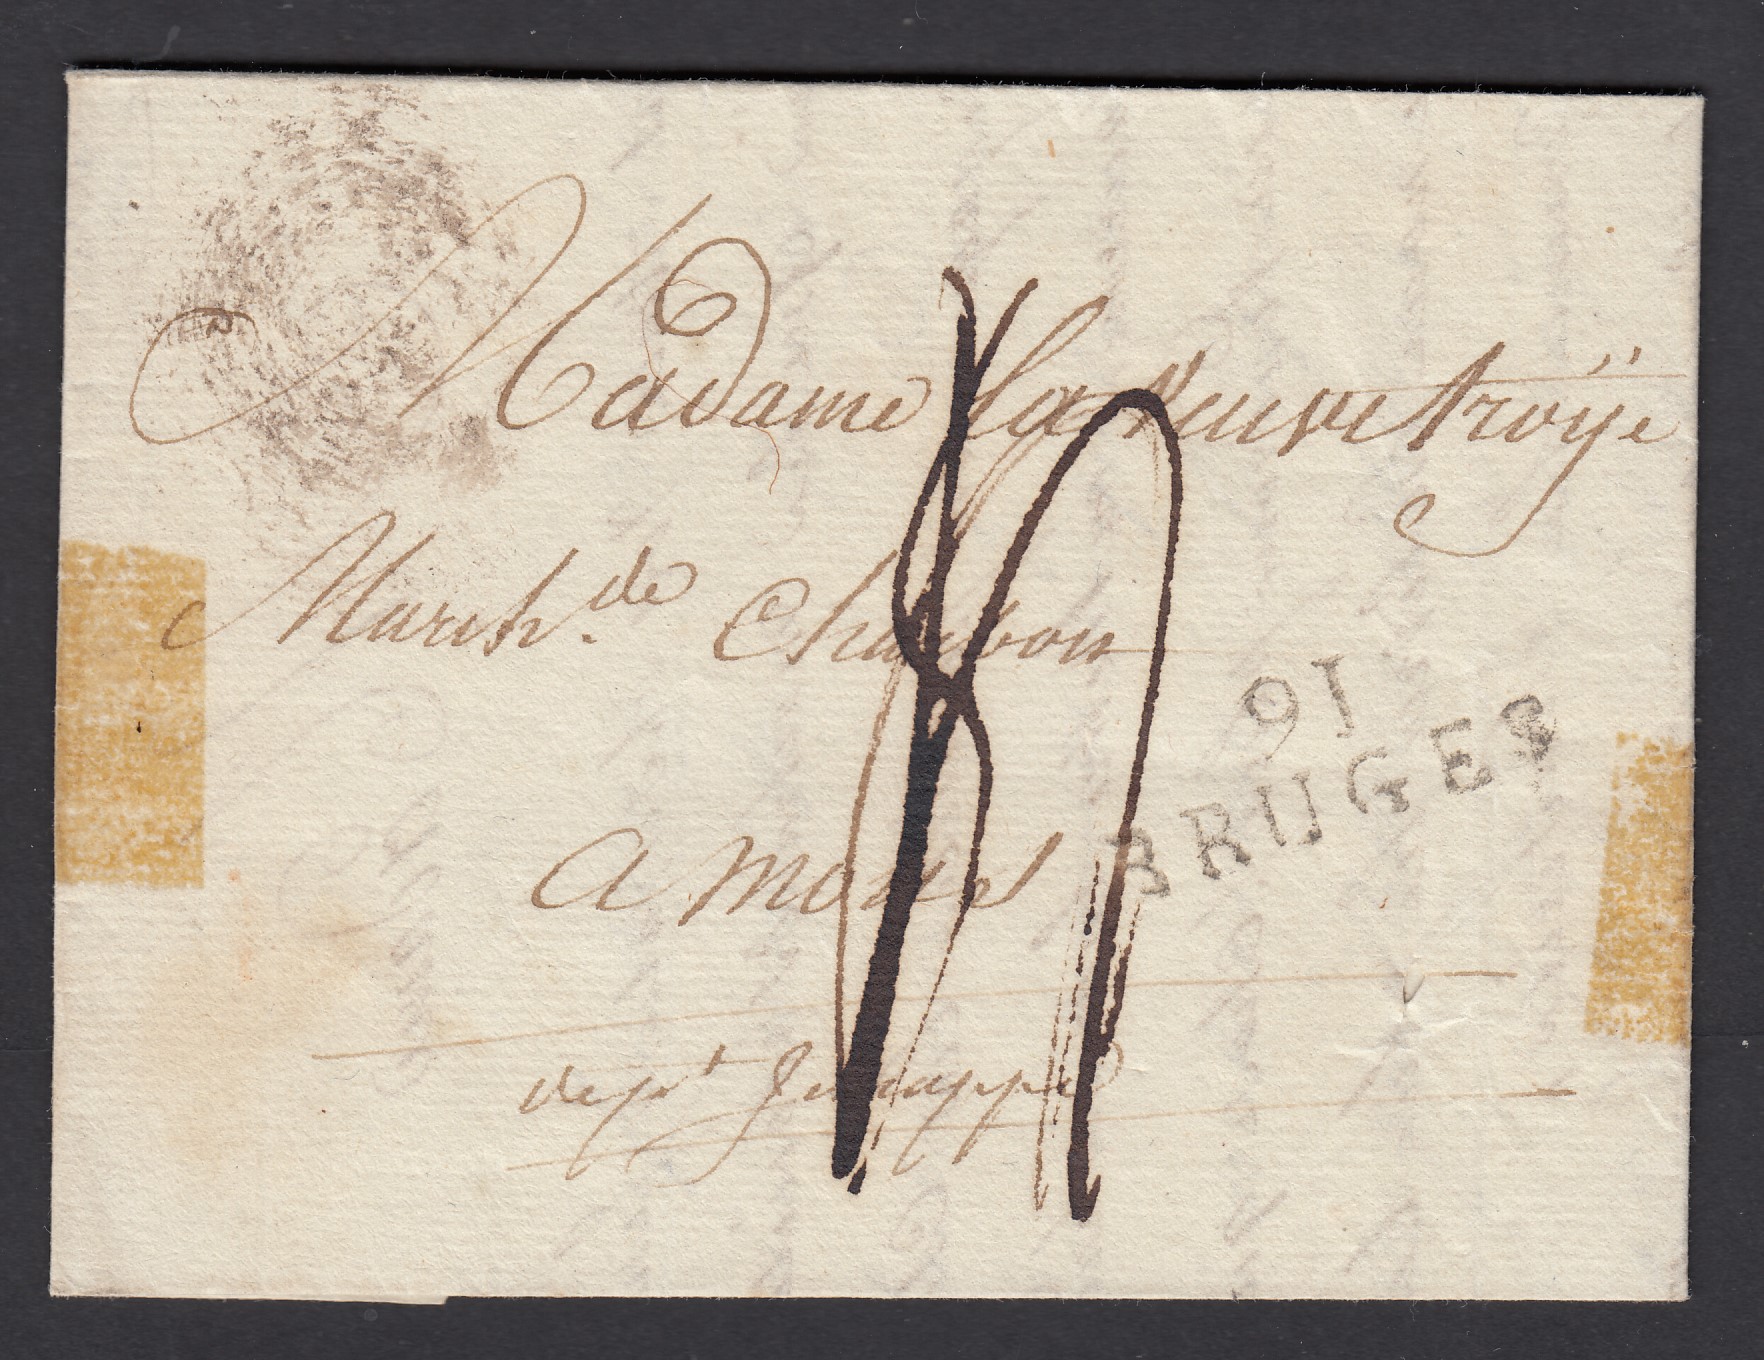 Madame la Veuve troÿe
March. de Charbon
a mons
dept. Jemappe
91
BRUGES